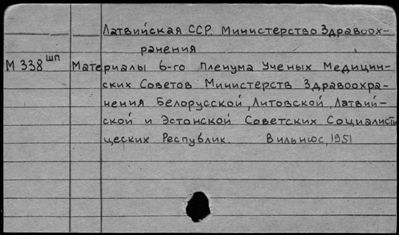 Латвийская ССР. Министерство Здравоох-
ранения
М 338 шп Материалы 6-го Пленума Ученых Медицин-
ских Советов Министерств Здравоохра-
нения Белорусской, Литовской, Латвий-
ской и Эстонской Советских Социалисти-
ческих Республик. Вильнюс, 1951